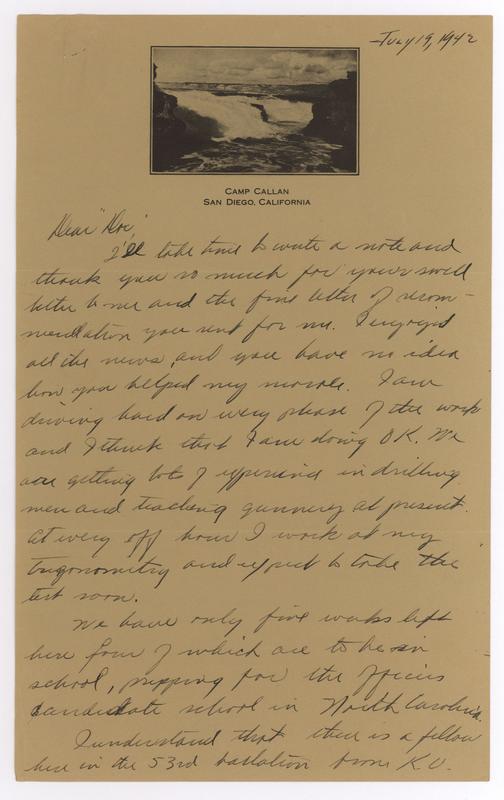 July 19, 1942
CAMP CALLAN
SAN DIEGO, CALIFORNIA
Dear "Doc,"
I'll take time to write a note and
thank you so much for your swell
letter to me and the fine letter of recom-
mendation you sent for me. I enjoyed
all the news, and you have no idea
how you helped my morale. I am
driving hard on every phase of the work
and I think that I am doing OK. We
are getting lots of experience in drilling
men and teaching gunnery at present.
At every off hour I work at my
trigonometry and expect to take the
test soon.
We have only five weeks left
here four of which are to be in
school, prepping for the officers
candidate school in North Carolina.
I understand that there is a fellow
here in the 53rd battalion from K.U.